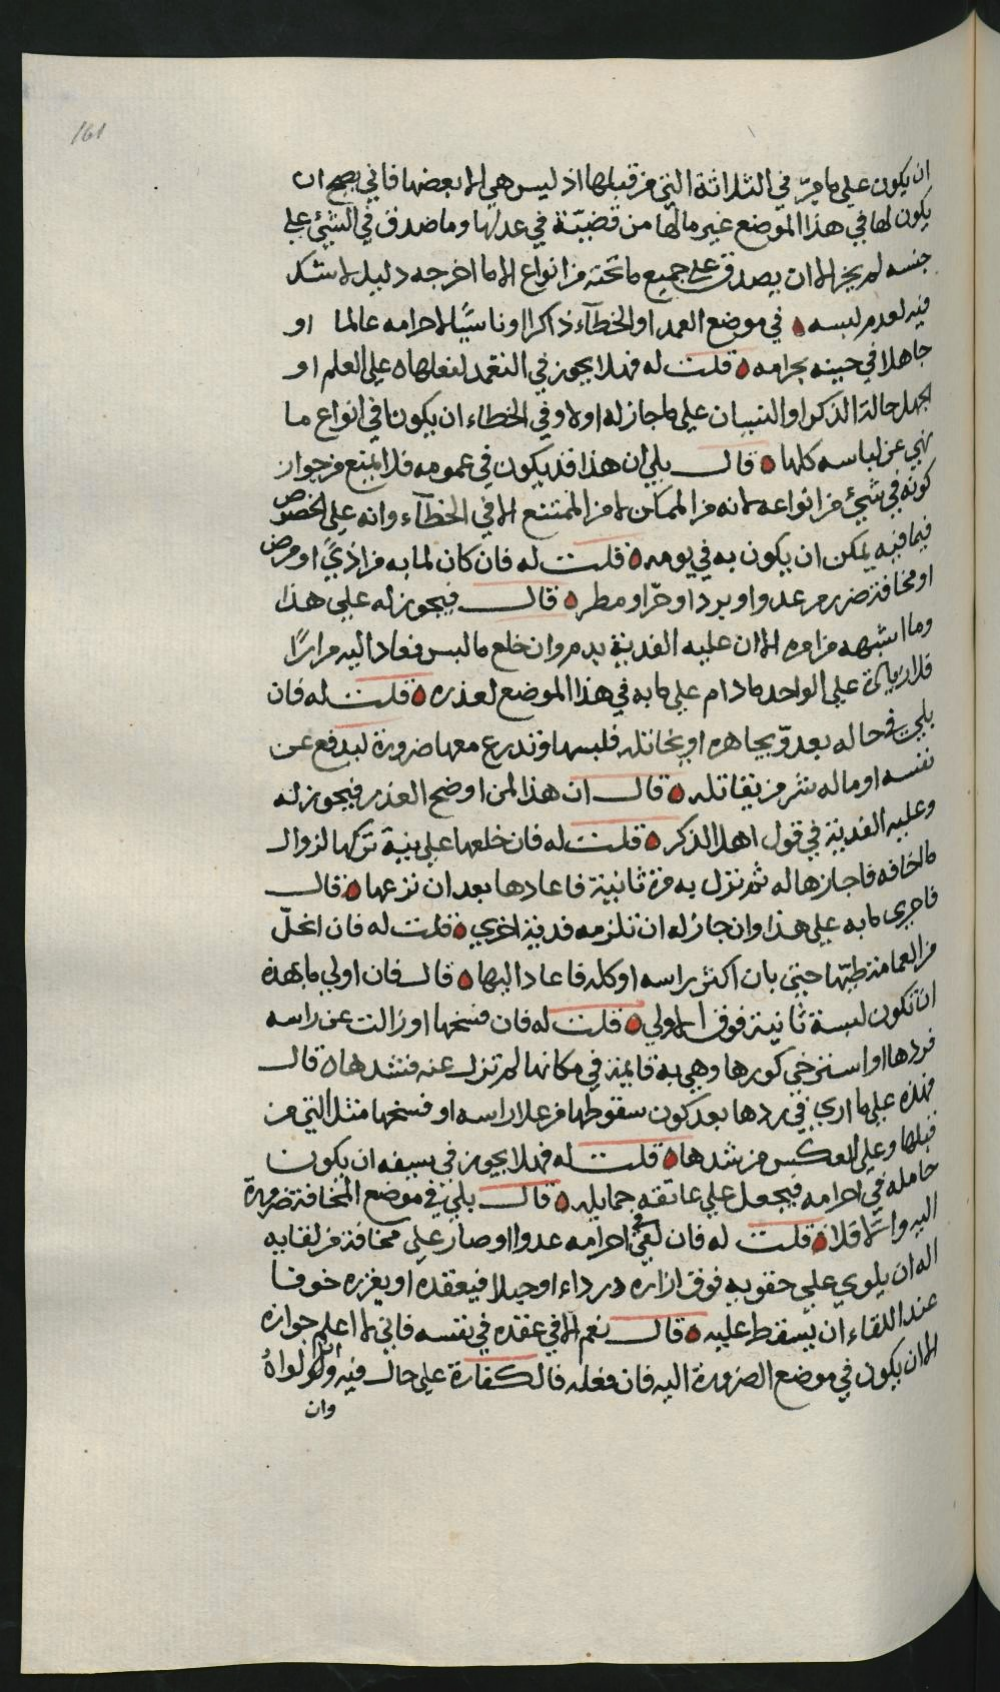 161
ان يكون على ما مرّ في الثلاثة التي من قبلها اذ ليس هي الا بعضها فاني يصح ان
يكون لها في هذا الموضع غير ما لها من قضيّة في عدلها وما صدق في الشيء على
جنسه لم يجز الا ان يصدق على جميع ما تحته من انواع الا ما اخرجه دليل لا شك
فيه لعدم لبسه في موضع العمد او الخطآء ذاكرا او ناسيًا لاحرامه عالما او
جاهلا في حينه بحرامه قلت له فهلا يجوز في التعمد لفعلها ه على العلم او
الجهل حالة الذكر او النسيان على ما جاز له اولا وفي الخطاء ان يكونا في انواع ما
نهي عن لباسه كلها قال بلى ان هذا قد يكون في عمومه فلا يمتنع من جواز
كونه في شيء من انواعه لانه من الممكن لا من الممتنع الا في الخطآء وانه على الخصوص
فيما فيه يمكن ان يكون به في يومه قلت له فان كان لما به من اذيً او مرض
او مخافة ضرر من عدو او برد او حرّ او مطر قال فيجوز له على هذا
وما اشبهه من امره الا ان عليه الفدية بدم وان خلع ما لبس فعاد اليه مرارًا
فلا زيادة على الواحد ما دام على ما به في هذا الموضع لعذره قلت له فان
بلي في حاله بعدوّ يجاهره او يخاتله فلبسها وتدرع معها ضرورة ليدفع عن
نفسه او ماله شر من يقاتله قال ان هذا لمن اوضح العذر فيجوز له
وعليه الفدية في قول اهل الذكر قلت له فان خلعها على نية تركها لزوال
ما خافه فاجازها له ثم نزل به مرة ثانية فاعادها بعد ان نزعها قال
فاحرى ما به على هذا وان جاز له ان تلزمه فدية اخرى قلت له فان انحلّ
من العمامة طيّها حتى بان اكثر راسه او كله فاعاد اليها قال فان اولى ما بهذه
ان تكون لبسة ثانية فوق الاولي قلت له فان فسخها او زالت عن راسه
فردها او استرخي كورها وهي به قايمة في مكانها لم تزل عنه فشدها ه قال
فهذه على ما ارى في ردها بعد كون سقوطها من علا راسه او فسخها مثل التي من
قبلها وعلى العكس من شدها قلت له فهلا يجوز في سيفه ان يكون
حامله في احرامه فيجعل على عاتقه حمايله قال بلى في موضع المخافة ضرورة
اليه والّا فلا قلت له فان لقي في احرامه عدوا او صار على مخافة من لقايه
اله ان يلوي على حقويه فوق ازاره رداء او حبلا فيعقده او يغرزه خوفا
عند اللقاء ان يسقط عليه قال نعم الا في عقده في نفسه فاني لا اعلم جوازه
الا ان يكون في موضع الضرورة اليه فان فعله فالكفارة على حال فيه ولو لواهُ
وان